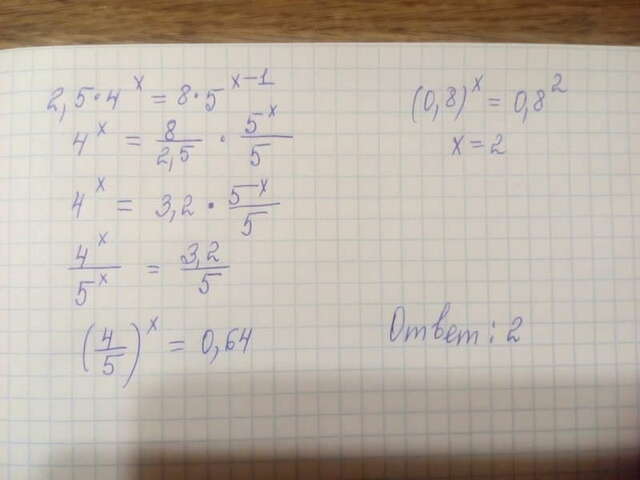 2,5·4^x = 8·5^(x-1)
4^x = 8/2,5 · 5^x/5
4^x = 3,2 · 5^x/5
4^x/5^x = 3,2/5
(4/5)^x = 0,64
(0,8)^x = 0,8^2
x = 2
Ответ: 2